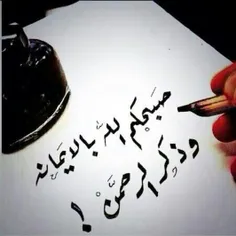 صبحكم الله بالايمان
وذكر الرحمن !